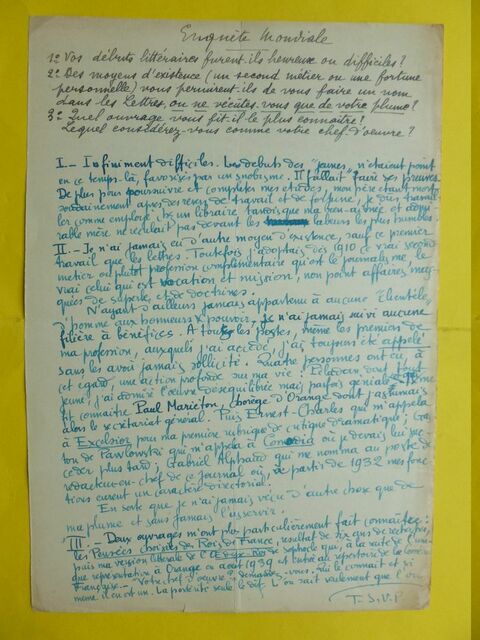 Enquête Mondiale
1º Vos débuts littéraires furent-ils heureux ou difficiles?
2º Des moyens d'existence (un second métier ou une fortune
personnelle) vous permirent-ils de vous faire un nom
dans les Lettres, ou ne vécûtes-vous que de votre plume?
3º Quel ouvrage vous fit-il le plus connaître?
Lequel considérez-vous comme votre chef d'œuvre?
I.- Infiniment difficiles. Les débuts des "jeunes" n'étaient point
en ce temps-là, favorisés par un snobisme. Il fallait faire ses preuves.
De plus pour poursuivre et compléter mes études, mon père étant mort
soudainement après des revers de travail et de fortune, je dus travail-
ler comme employé chez un libraire tandis que ma et ado-
rable mère ne reculait pas devant les labeurs les plus humbles.
II.- Je n'ai jamais eu d'autre moyen d'existence, sauf ce premier
travail que les lettres. Toutefois j'adoptai dès 1910 ce vrai second
métier ou plutôt profession complémentaire qu'est le journalisme le
vrai celui qui est vocation et mission, non point affaires mas-
quées de superbe, et de doctrines.
N'ayant d'ailleurs jamais appartenu à aucune clientèle,
d'homme aux honneurs & pouvoir, je n'ai jamais suivi aucune
filière à bénéfices. A tous les postes, même les premiers de
ma profession, auxquels j'ai accédé, j'ai toujours été appelé
sans les avoir jamais sollicité. Quatre personnes ont eu, à
cet égard, une action profonde sur ma vie: Péladan dont tout
jeune, j'ai admiré l'œuvre déséquilibrée mais parfois géniale me
fit connaître Paul Mariéton, chorège d'Orange dont j'assumais
alors le secrétariat général. Puis Ernest-Charles qui m'appela
à Excelsior pour ma première rubrique de critique dramatique; Gas-
ton de Pawlowski qui m'appela à Comœdia où je devais lui suc-
céder plus tard; Gabriel Alphaud qui me nomma au poste de
rédacteur-en-chef de ce journal où, à partir de 1932 mes fonc-
tions eurent un caractère directorial.
En sorte que je n'ai jamais vécu d'autre chose que de
ma plume et sans jamais l'asservir.
III.- Deux ouvrages m'ont plus particulièrement fait connaître:
les Pensées choisies des Rois de France, résultat de dix ans de recherches,
puis ma version littérale de l'Œdipe-Roi de Sophocle qui, à la suite de
que représentée à Orange en août 1939 est entrée au répertoire de la Comédie
Française.- Votre chef d'œuvre? demandez-vous. Qui le connaît et si
même il en est un. La postérité seule le dit. L'on sait seulement que l'on
T.S.V.P.